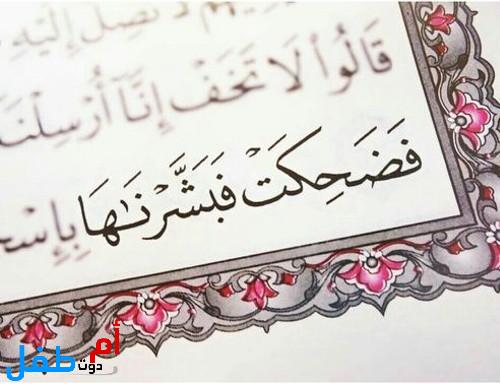 لَا تَصِلُ إِلَيْهِ
قَالُوا۟ لَا تَخَفْ إِنَّآ أُرْسِلْنَآ
فَضَحِكَتْ فَبَشَّرْنَٰهَا بِإِسْحَ
أم دوت طفل